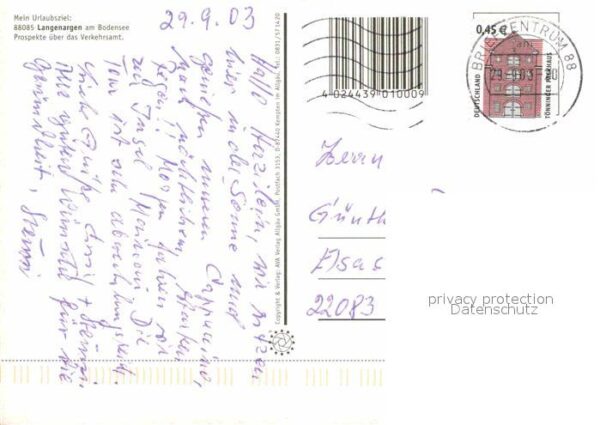 Mein Urlaubsziel:
88085 Langenargen am Bodensee
Prospekte über das Verkehrsamt.
29.9.03
Hallo Herzilein, wir sitzen
hier in der Sonne und
genießen unseren Cappuccino,
nach nächtlichem
Regen! Morgen fahren wir
zur Insel Mainau. Die
Tour ist sehr abwechslungsreich.
Viele Grüße +
Alle guten Wünsche für die
Gesundheit,
Copyright & Verlag: AVA Verlag Allgäu GmbH, Postfach 3153, D-87440 Kempten im Allgäu, Tel.: 0831/571420
4 024439 010009
BRIEFZENTRUM 88
0,45 €
DEUTSCHLAND
TÖNNINGER PACKHAUS
Herrn
Günth
Asas
22083
privacy protection
Datenschutz